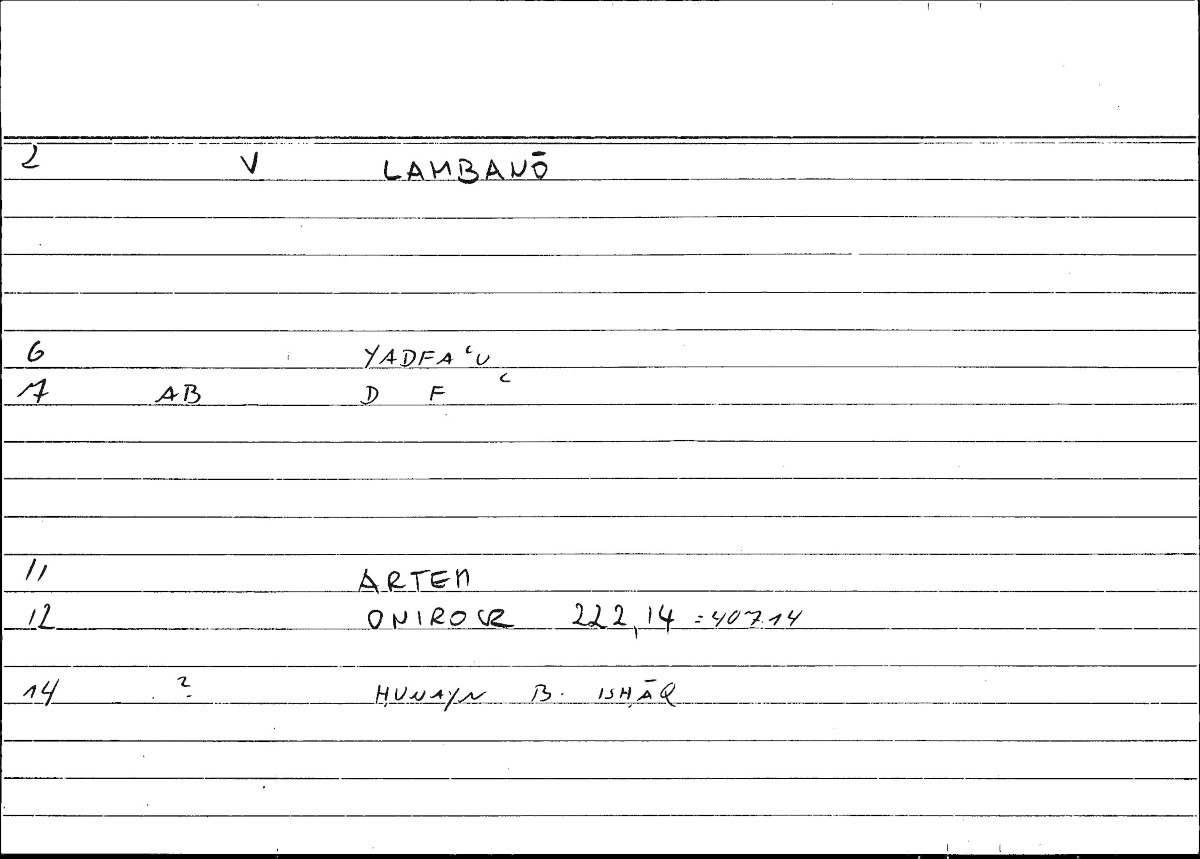 2 V LAMBANŌ
6 YADFAʿU
7 AB D F ʿ
11 ARTEM
12 ONIROCR 222,14 =407.14
14 ? ḤUNAYN B. ISḤĀQ